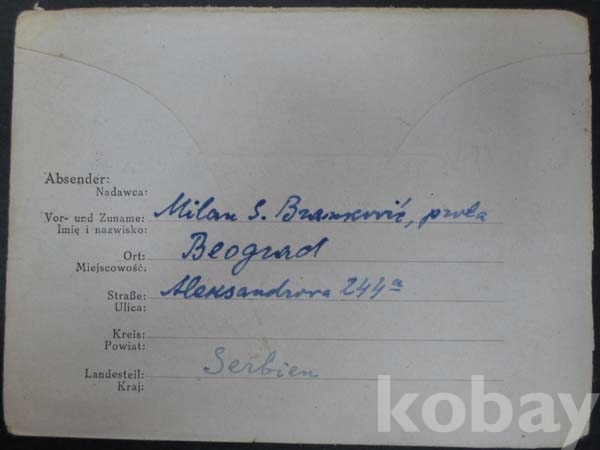 Absender:
Nadawca:
Vor- und Zuname: Milan S. Branković, prota
Imię i nazwisko:
Ort: Beograd
Miejscowość:
Straße: Aleksandrova 244a
Ulica:
Kreis:
Powiat:
Landesteil: Serbien
Kraj:
kobay